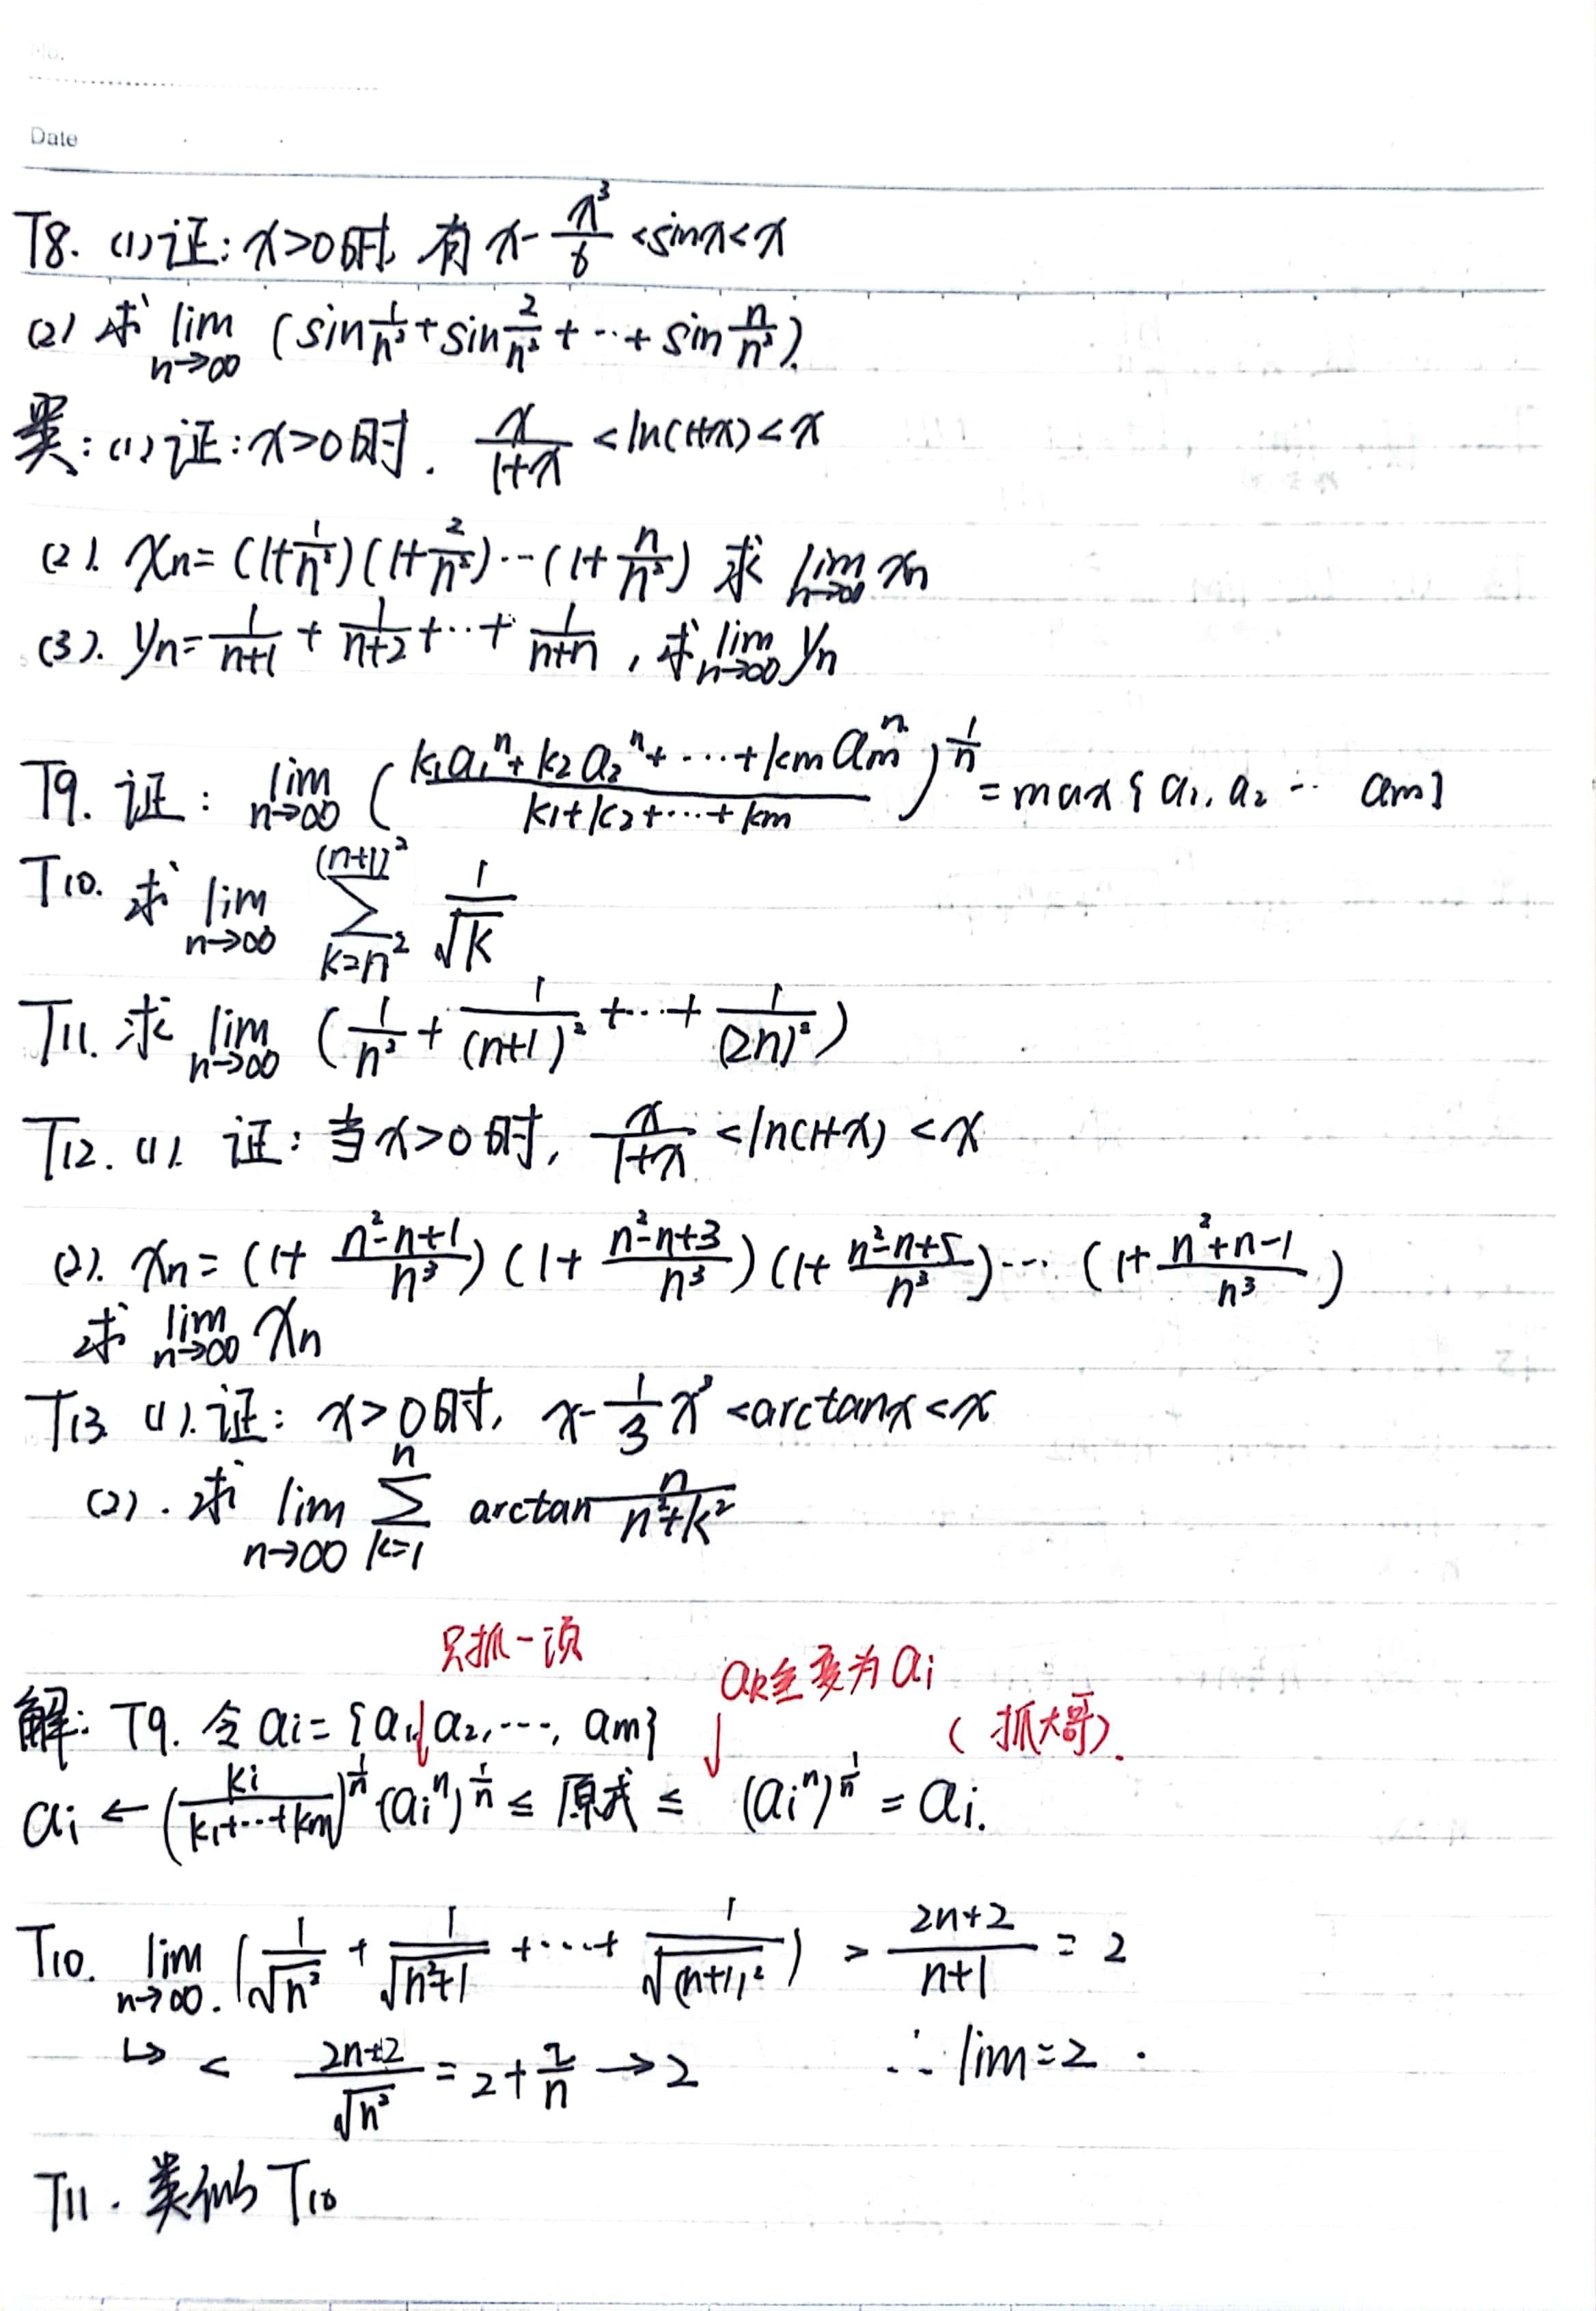 No.
Date
T8. (1) 证: x>0时, 有 x-x³/6 <sinx<x
(2) 求 lim n→∞ (sin 1/n² + sin 2/n² + … + sin n/n²).
类: (1) 证: x>0时. x/(1+x) <ln(1+x)<x
(2). xn=(1+1/n²)(1+2/n²)…(1+n/n²) 求 lim n→∞ xn
(3). yn=1/(n+1) + 1/(n+2) +…+ 1/(n+n), 求 lim n→∞ yn
T9. 证: lim n→∞ ((k₁a₁ⁿ+k₂a₂ⁿ+…+kmamⁿ)/(k₁+k₂+…+km))^(1/n) =max{a₁,a₂…am}
T10. 求 lim n→∞ ∑ k=n² (n+1)² 1/√k
T11. 求 lim n→∞ (1/n² + 1/(n+1)² +…+ 1/(2n)²)
T12. (1). 证: 当x>0时, x/(1+x) <ln(1+x) <x
(2). xn=(1+ (n²-n+1)/n³)(1+ (n²-n+3)/n³)(1+ (n²-n+5)/n³)…(1+ (n²+n-1)/n³)
求 lim n→∞ xn
T13 (1). 证: x>0时, x-1/3 x³ <arctanx<x
(2). 求 lim n→∞ ∑ k=1 n arctan n/(n²+k²)
只抓一项
ak全变为ai
解: T9. 令 ai={a₁,a₂,…,am} (抓大哥).
ai ← (ki/(k₁+…+km))^(1/n) (aiⁿ)^(1/n) ≤ 原式 ≤ (aiⁿ)^(1/n) = ai.
T10. lim n→∞. (1/√n² + 1/√(n²+1) +…+ 1/√(n+1)²) > (2n+2)/(n+1) = 2
↳ < (2n+2)/√n² = 2+2/n → 2 ∴ lim=2.
T11. 类似T10